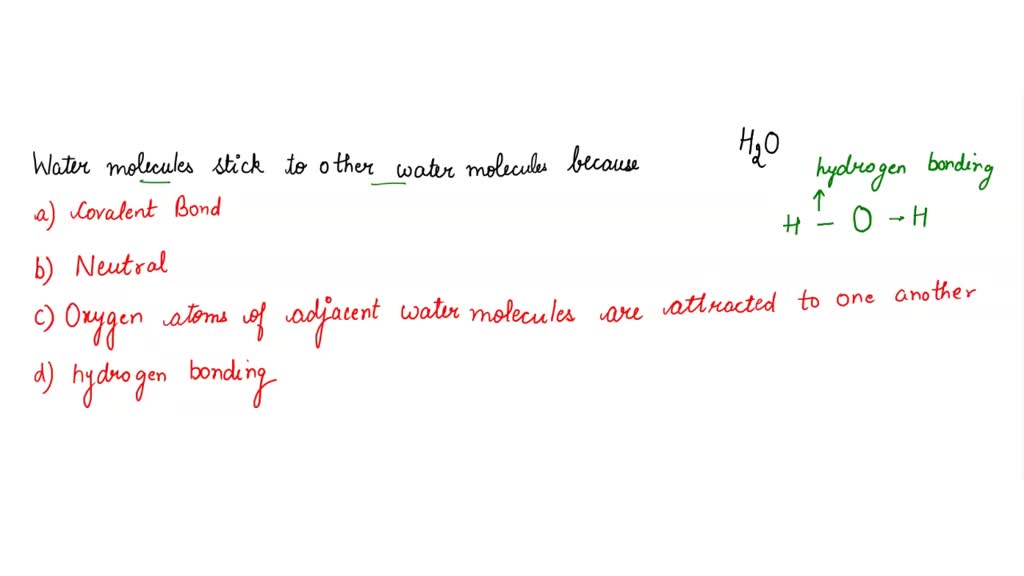 Water molecules stick to other water molecules because
a) Covalent Bond
b) Neutral
c) Oxygen atoms of adjacent water molecules are attracted to one another
d) hydrogen bonding
H₂O
hydrogen bonding
↑
H — O → H